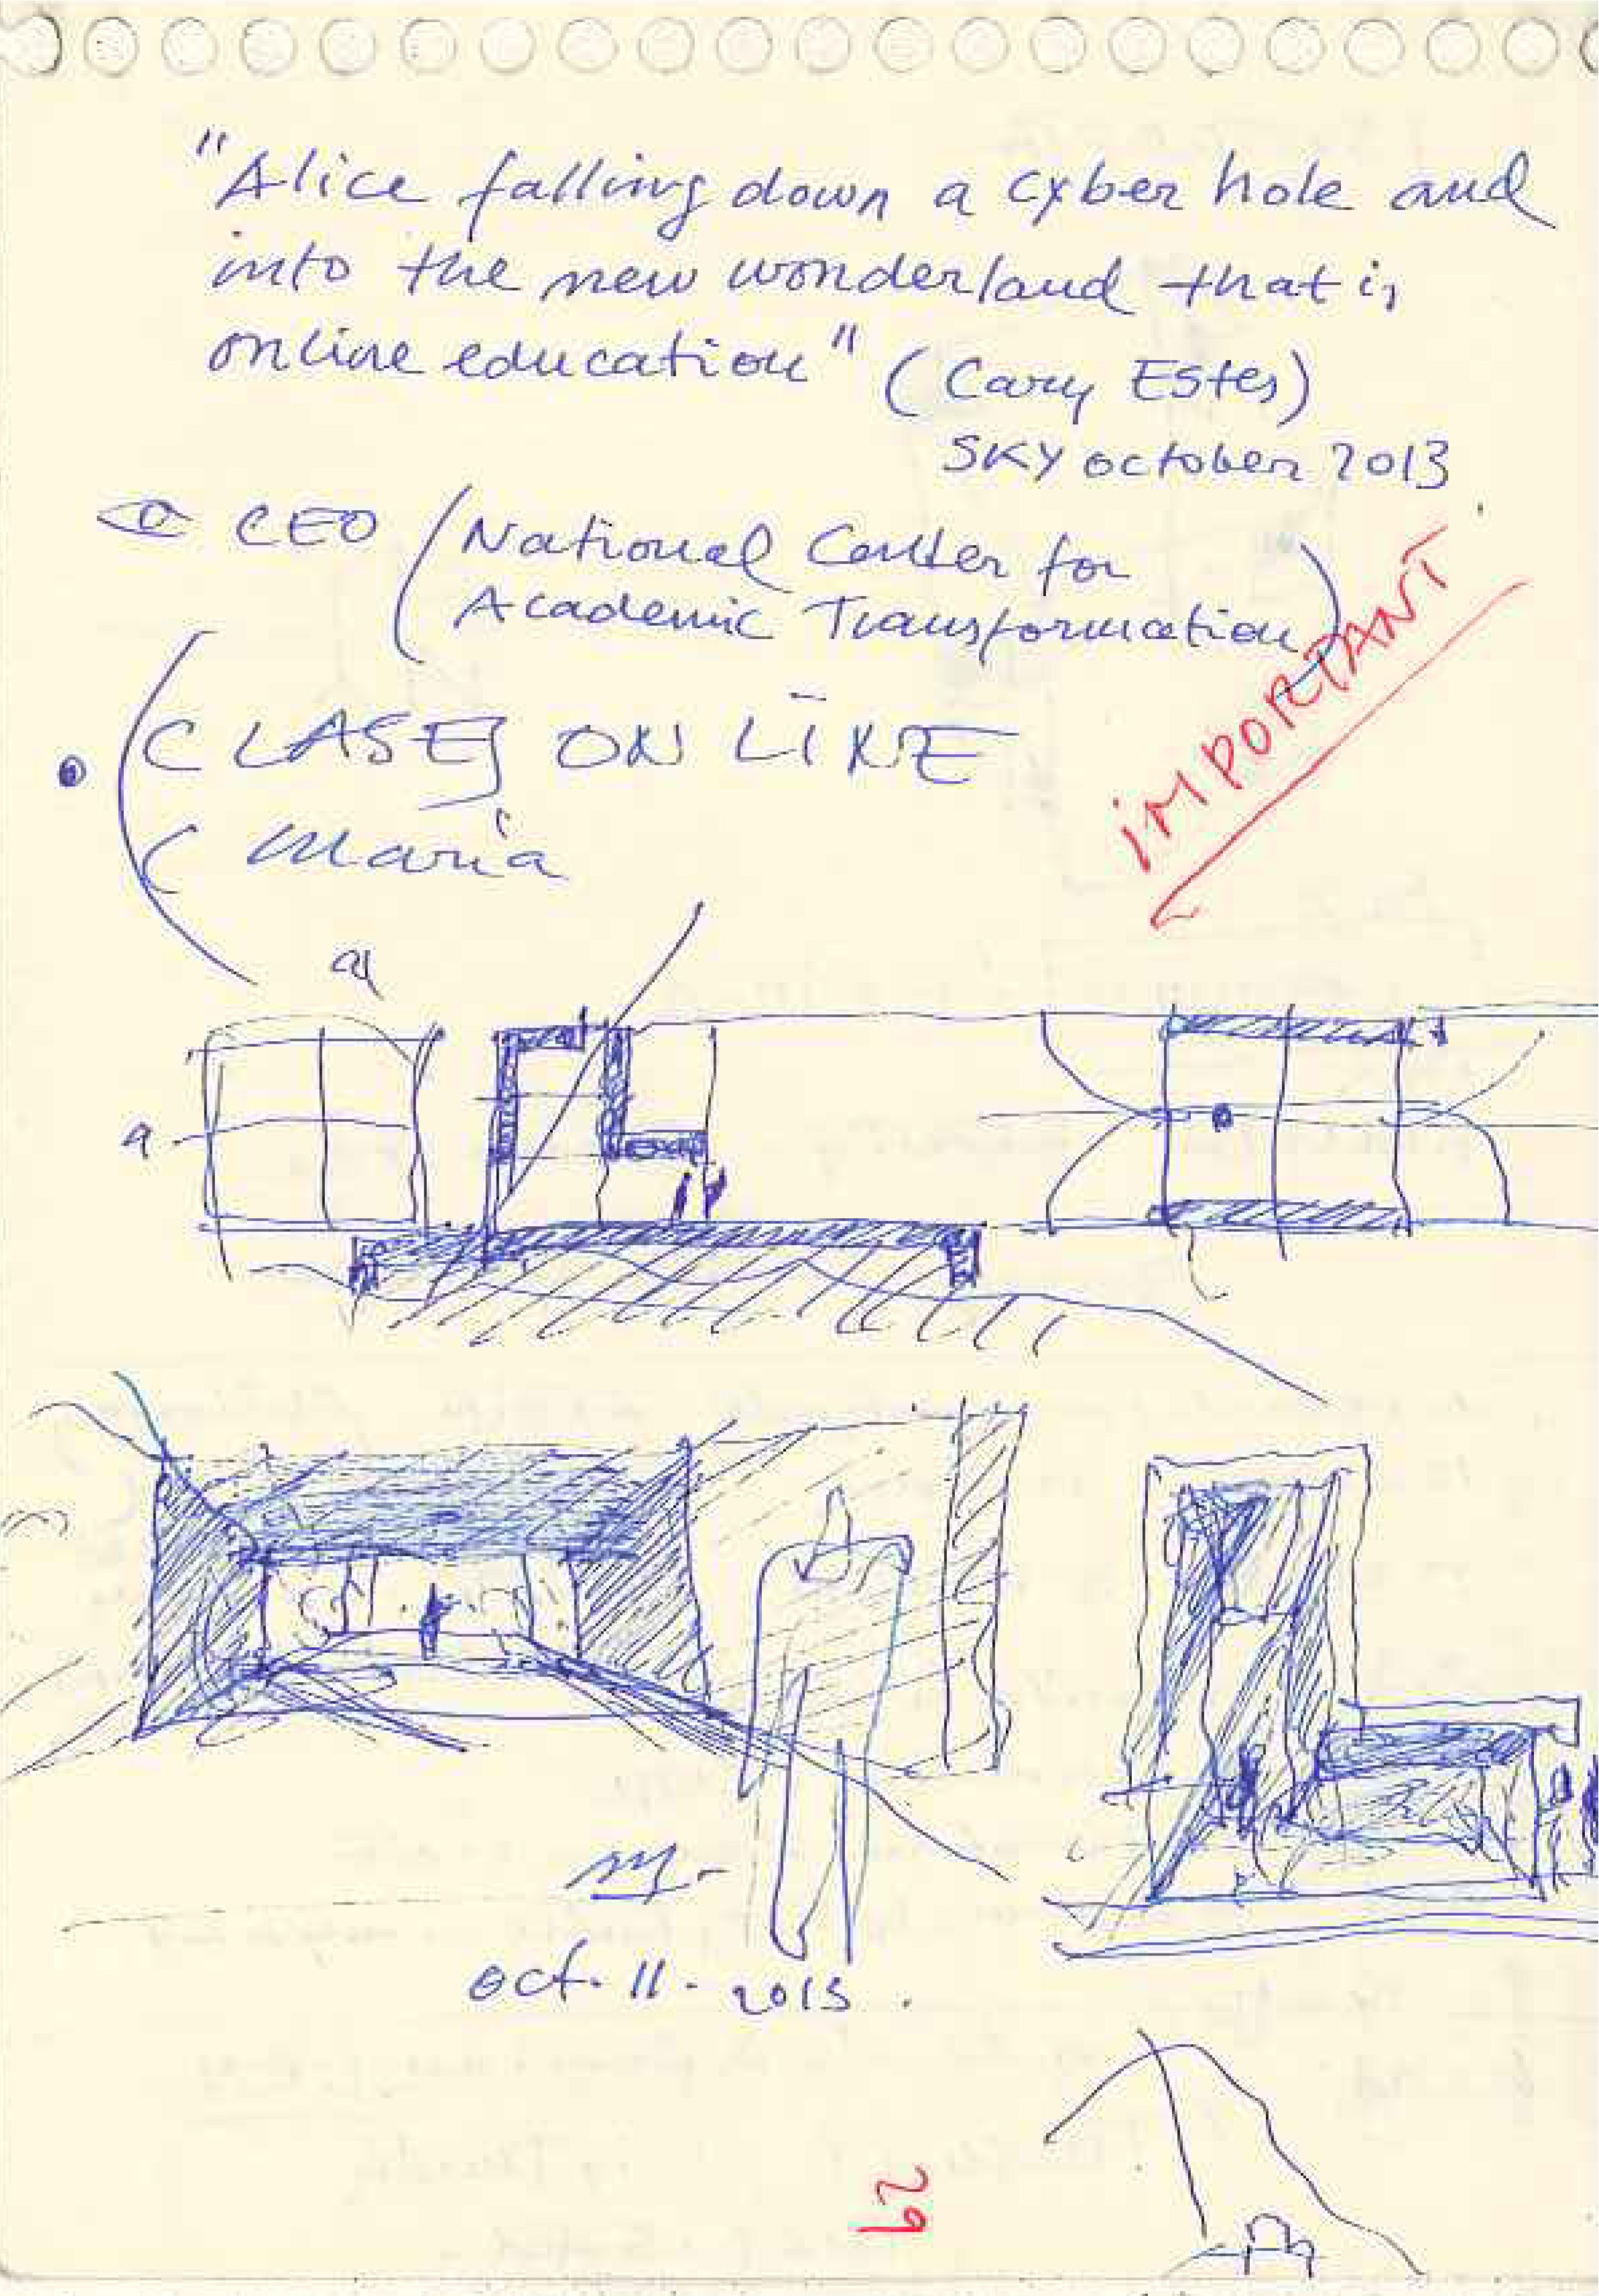 "Alice falling down a cyber hole and
into the new wonderland that is
online education" (Cary Estes)
SKY october 2013
CEO (National Center for
Academic Transformation)
IMPORTANT
CLASES ON LINE
María
a
a
M-
oct. 11. 2013.
29